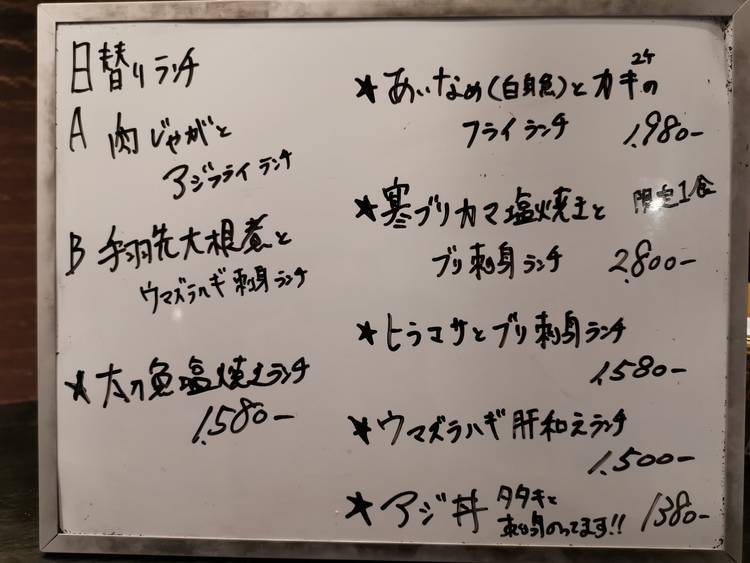 日替りランチ
A 肉じゃがと
アジフライランチ
B 手羽先大根煮と
ウマズラハギ刺身ランチ
★太刀魚塩焼きランチ
1,580-
★あいなめ(白身魚)とカキの
2ケ
フライランチ 1,980-
★寒ブリカマ塩焼きと 限定1食
ブリ刺身ランチ 2,800-
★ヒラマサとブリ刺身ランチ
1,580-
★ウマズラハギ肝和えランチ
1,500-
★アジ丼 タタキと 1380-
刺身のってます!!